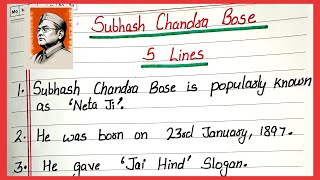 Subhash Chandra Bose
5 Lines
1. Subhash Chandra Bose is popularly known
as 'Neta Ji'.
2. He was born on 23rd January, 1897.
3. He gave 'Jai Hind' Slogan.